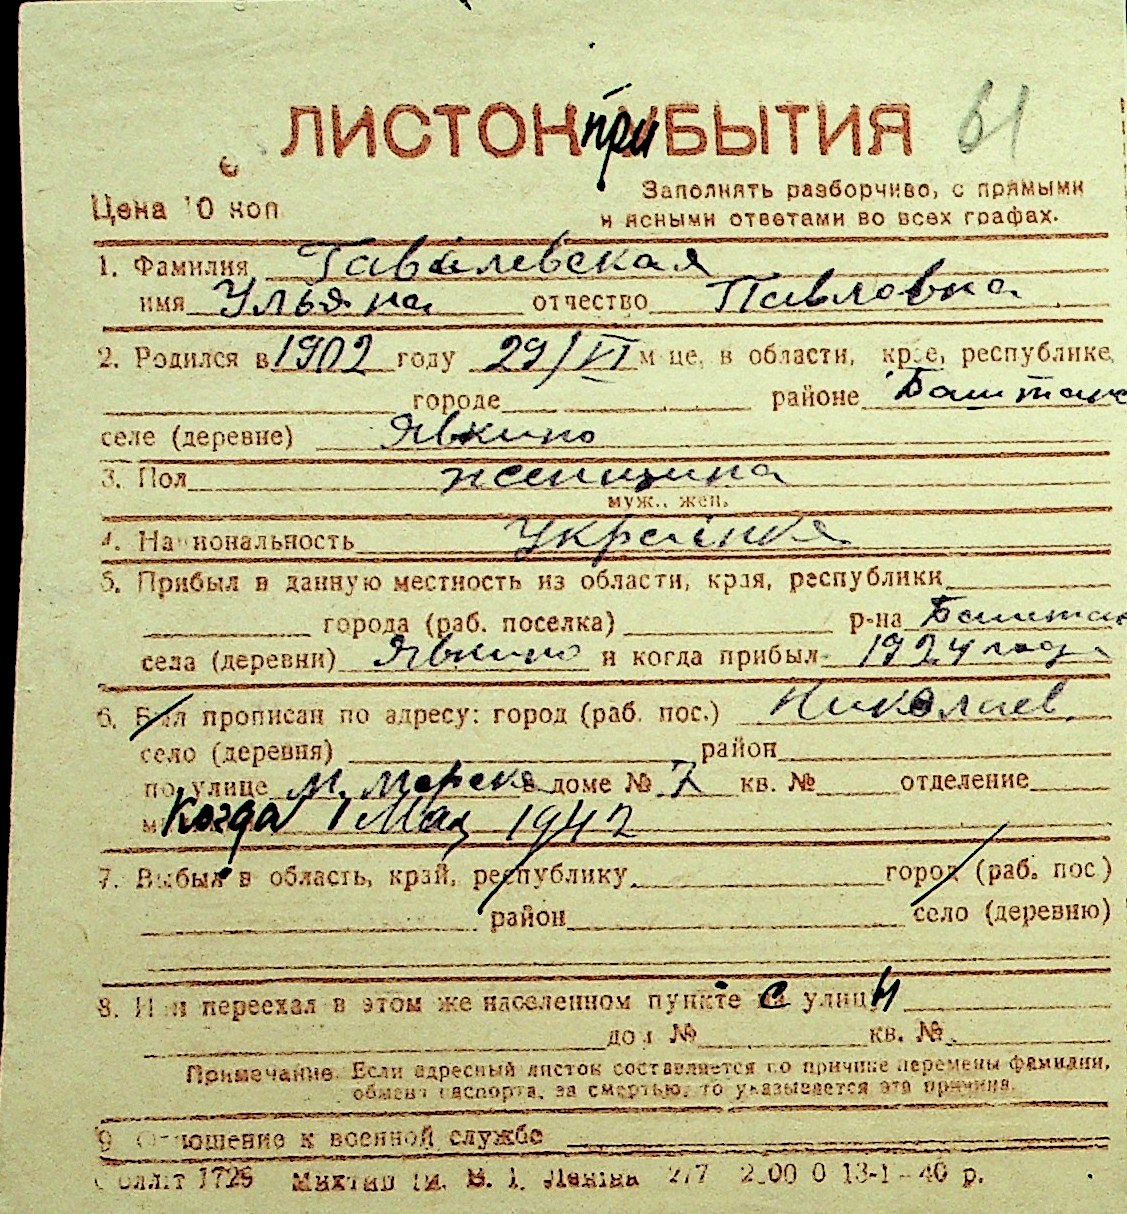 ЛИСТОК при БЫТИЯ 61
Цена 10 коп
Заполнять разборчиво, с прямыми
и ясными ответами во всех графах.
1. Фамилия Гавалевская
имя Ульяна отчество Павловна
2. Родился в 1902 году 29/VI м-це, в области, крае, республике,
городе районе Баштанс
селе (деревне) Явкино
3. Пол женщина
муж., жен.
4. Национальность Украінка
5. Прибыл в данную местность из области, края, республики
города (раб. поселка) р-на Баштан
села (деревни) Явкино и когда прибыл 1924 года
6. Был прописан по адресу: город (раб. пос.) Николаев
село (деревня) район
по улице М. Морская в доме № 7 кв. № отделение
Когда 1 Мая 1942
7. Выбыл в область, край, республику город (раб. пос)
район село (деревню)
8. Или переехал в этом же населенном пункте с улицы
дом № кв. №
Примечание. Если адресный листок составляется по причине перемены фамилии,
обмена паспорта, за смертью, то указывается эта причина.
9 Отношение к военной службе
1725 ім. В. І. Леніна 277 13-1-40 р.